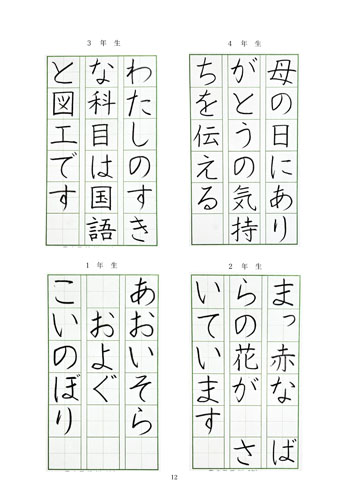 3年生
わたしのすき
な科目は国語
と図工です
4年生
母の日にあり
がとうの気持
ちを伝える
1年生
あおいそら
およぐ
こいのぼり
2年生
まっ赤な ば
らの花が さ
いています
12